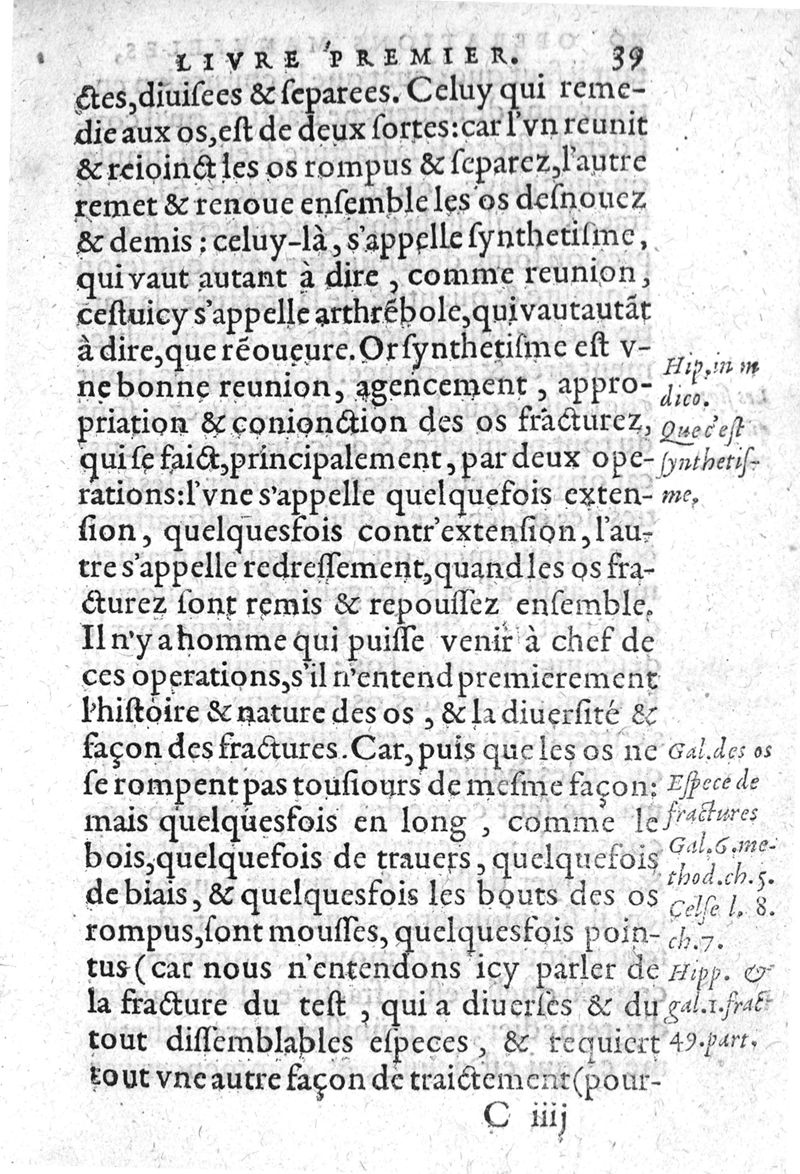 LIVRE PREMIER. 39
ctes,diuiſees & ſeparees. Celuy qui reme-
die aux os,eſt de deux ſortes:car l'vn reunit
& reioinct les os rompus & ſeparez,l'autre
remet & renoue enſemble les os deſnouez
& demis : celuy-là, s'appelle ſynthetiſme,
qui vaut autant à dire , comme reunion,
ceſtuicy s'appelle arthrẽbole,qui vaut autãt
à dire,que rẽoueure. Or ſynthetiſme eſt v-
ne bonne reunion, agencement , appro-
priation & conionction des os fracturez,
qui ſe faict,principalement, par deux ope-
rations:l'vne s'appelle quelquefois exten-
ſion, quelquesfois contr'extenſion, l'au-
tre s'appelle redreſſement,quand les os fra-
cturez ſont remis & repouſſez enſemble.
Il n'y a homme qui puiſſe venir à chef de
ces operations,s'il n'entend premierement
l'hiſtoire & nature des os , & la diuerſité &
façon des fractures. Car, puis que les os ne
ſe rompent pas touſiours de meſme façon:
mais quelquesfois en long , comme le
bois,quelquefois de trauers, quelquefois
de biais, & quelquesfois les bouts des os
rompus,ſont mouſſes, quelquesfois poin-
tus (car nous n'entendons icy parler de
la fracture du teſt , qui a diuerſes & du
tout diſſemblables eſpeces , & requiert
tout vne autre façon de traictement(pour-
C iiij
Hip. in m
dico.
Que c'eſt
ſynthetiſ-
me.
Gal. des os
Eſpece de
fractures
Gal. 6. me-
thod. ch. 5.
Celſe l. 8.
ch. 7.
Hipp. &
gal. 1. fract
49. part.